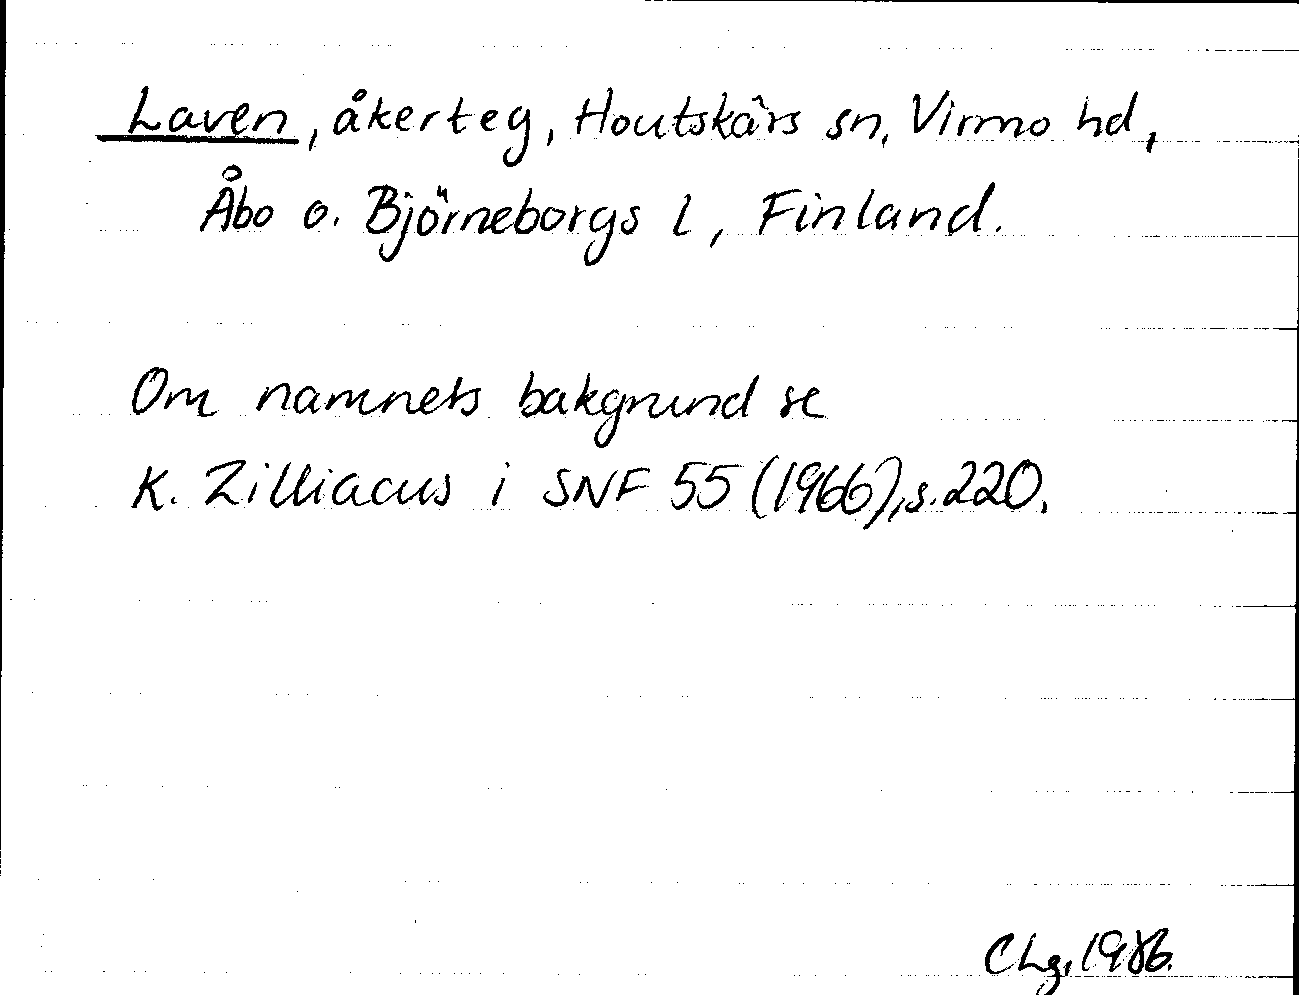 Laven, åkerteg, Houtskärs sn, Virmo hd,
Åbo o. Björneborgs l, Finland.
Om namnets bakgrund se
K. Zilliacus i SNF 55 (1966), s. 220.
CLg, 1986.